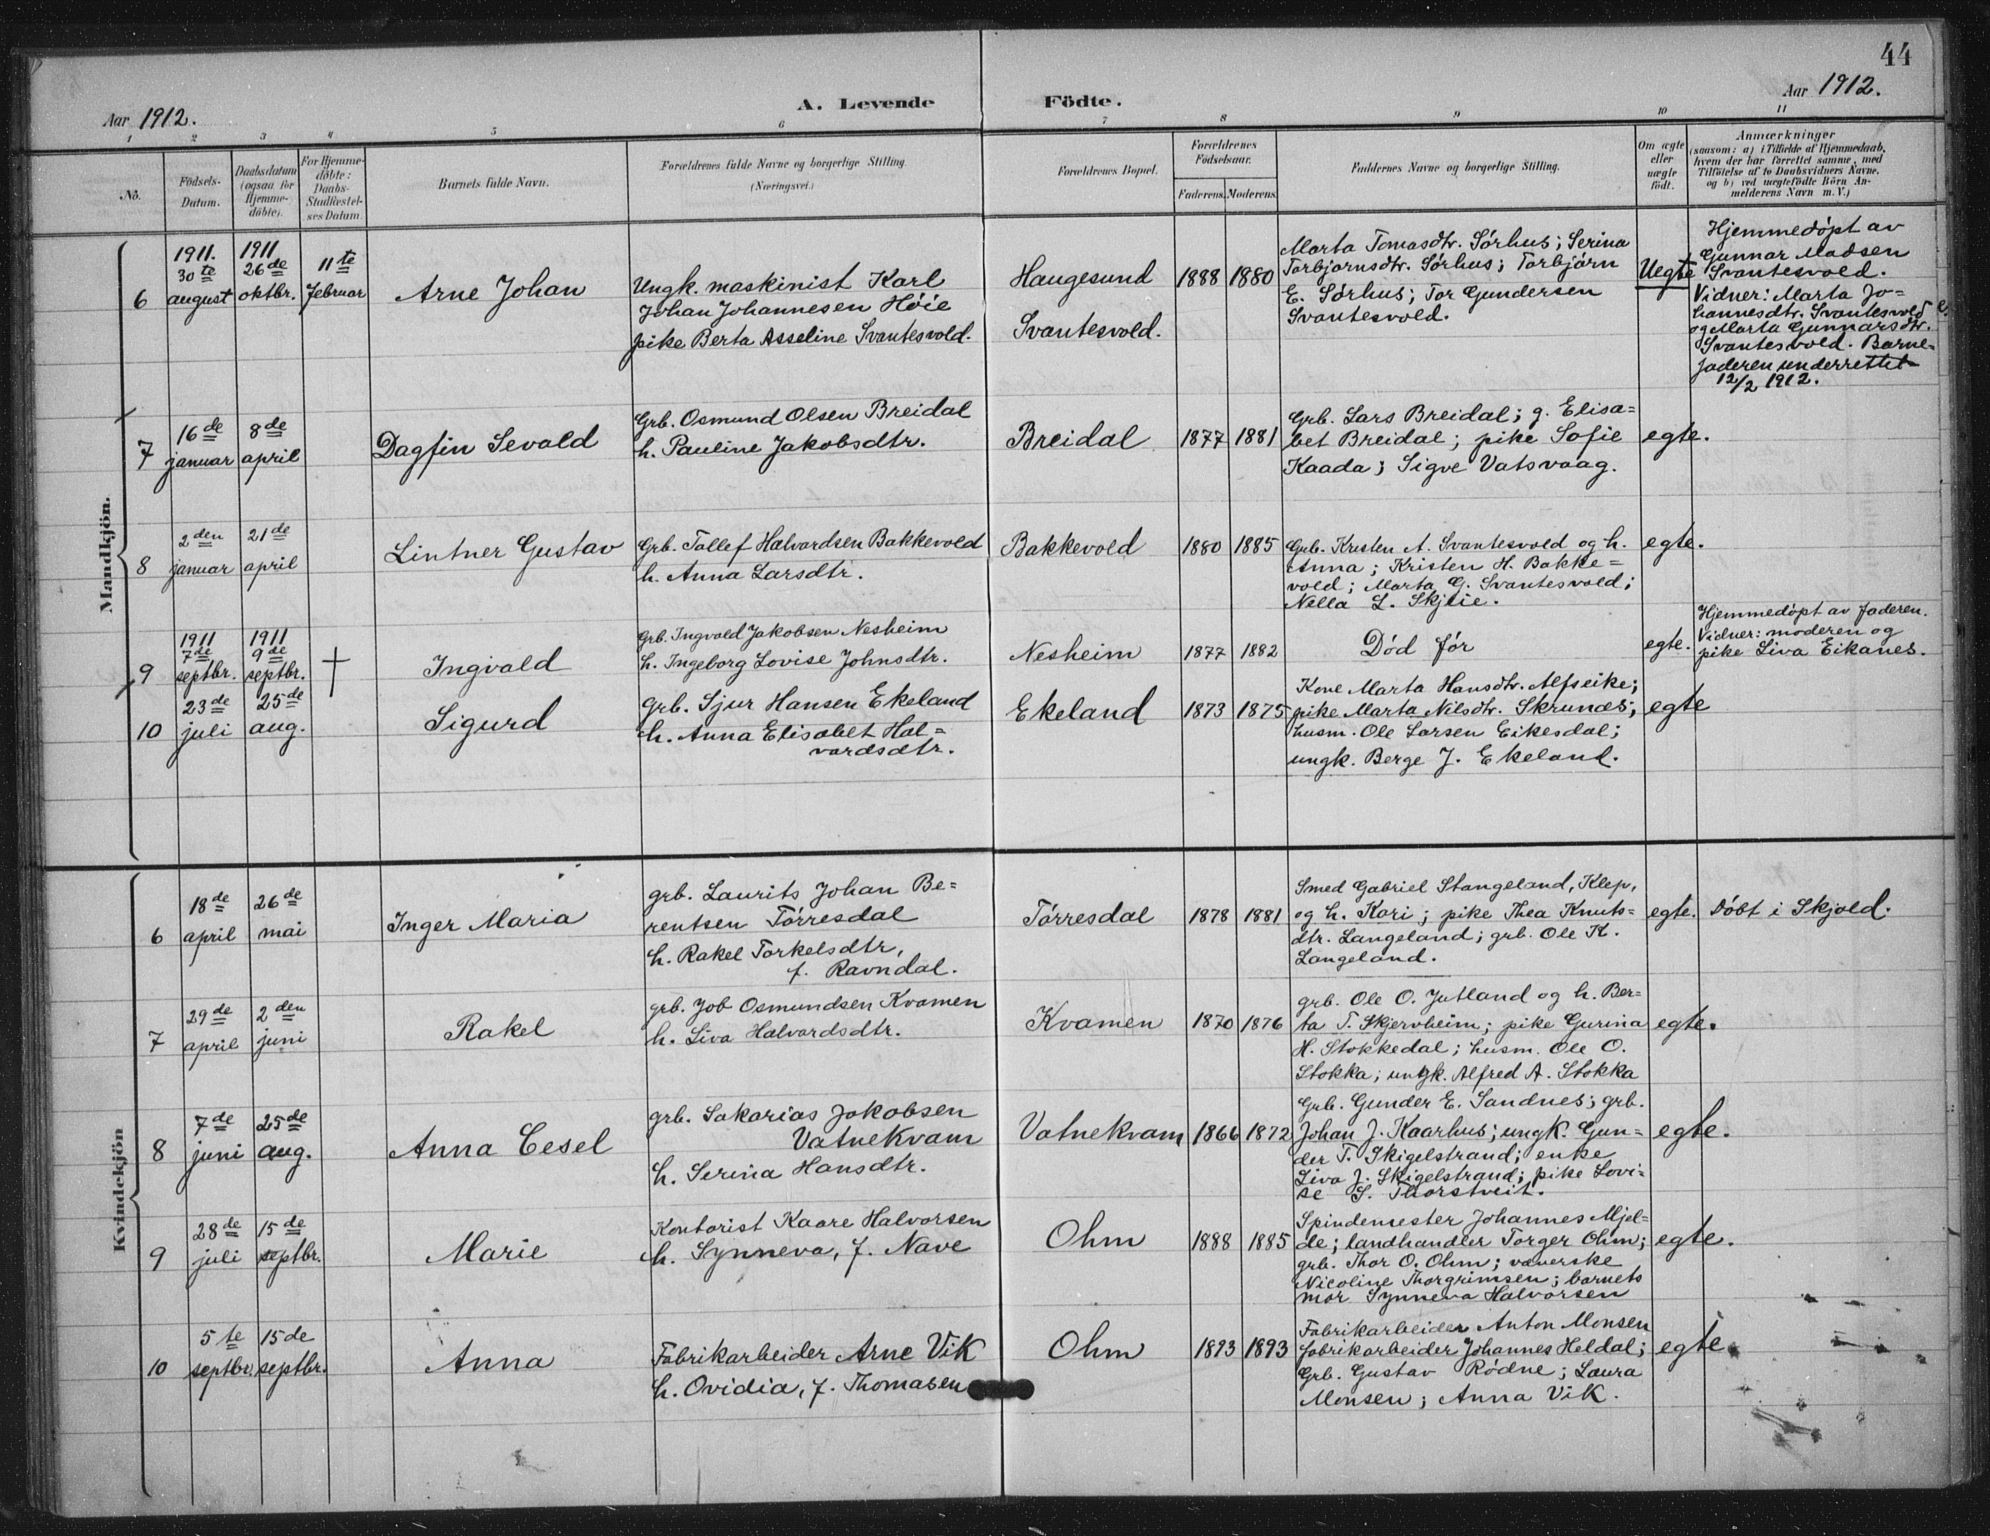 44
Aar 1912.
A. Levende Födte.
Aar 1912.
1 2 3 4 5 6 7 8 9 10 11
No.
Födsels-
Datum.
Daabsdatum
(ogsaa for
Hjemme-
döbte).
For Hjemme-
döbte:
Daabs-
Stadfæstel-
ses Datum.
Barnets fulde Navn.
Forældrenes fulde Navne og borgerlige Stilling.
(Næringsvei.)
Forældrenes Bopæl.
Forældrenes
Födselsaar.
Faderens. Moderens.
Faddernes Navne og borgerlige Stilling.
Om ægte
eller
uægte
födt.
Anmærkninger
(saasom: a) i Tilfælde af Hjemmedaab,
hvem der har forrettet samme, med
Tilföielse af to Daabsvidners Navne,
og b) ved uægtefödte Börn An-
melderens Navn m. V.)
Mandkjön.
6
1911.
30te
august
1911
26de
oktbr.
11te
februar
Arne Johan
Ungk. maskinist Karl
Johan Johannesen Høie
pike Berta Asseline Svantesvold.
Haugesund
Svantesvold.
1888 1880
Marta Tomasdtr. Sørhus; Serina
Torbjørnsdtr. Sørhus; Torbjørn
E. Sørhus; Tor Gundersen
Svantesvold.
Uegte
Hjemmedøpt av
Gunnar Madsen
Svantesvold.
Vidner: Marta Jo=
hannesdtr. Svantesvold
og Marta Gunnarsdtr.
Svantesvold. Barne=
faderen underrettet
12/2 1912.
7
16de
januar
8de
april
Dagfin Sevald
Grb. Osmund Olsen Breidal
h. Pauline Jakobsdtr.
Breidal
1877 1881
Grb. Lars Breidal; g. Elisa=
bet Breidal; pike Sofie
Kaada; Sigve Vatsvaag.
egte.
8
2den
januar
21de
april
Lintner Gustav
Grb. Tollef Halvardsen Bakkevold
h. Anna Larsdtr.
Bakkevold
1880 1885
Grb. Kristen A. Svantesvold og h.
Anna; Kristen H. Bakke=
vold; Marta G. Svantesvold;
Nella L. Skjeie.
egte.
9
1911
7de
septbr.
1911
9de
septbr.
†
Ingvald
Grb. Ingvald Jakobsen Nesheim
h. Ingeborg Lovise Johnsdtr.
Nesheim
1877 1882
Død før
egte.
Hjemmedøpt av faderen.
Vidner: moderen og
pike Liva Eikanes.
10
23de
juli
25de
aug.
Sigurd
Grb. Sjur Hansen Ekeland
h. Anna Elisabet Hal=
vardsdtr.
Ekeland
1873 1875
Kone Marta Hansdtr. Alfseike;
pike Marta Nilsdtr. Skrunes;
husm. Ole Larsen Eikesdal;
ungk. Berge J. Ekeland.
egte
Kvindekjön
6
18de
april
26de
mai
Inger Maria
grb. Laurits Johan Be=
rentsen Tørresdal
h. Rakel Torkelsdtr,
f. Ravndal.
Tørresdal
1878 1881
Smed Gabriel Stangeland, Klep,
og h. Kari; pike Thea Knuts=
dtr. Langeland; grb. Ole K.
Langeland.
egte.
Døbt i Skjold.
7
29de
april
2den
juni
Rakel
grb. Job Osmundsen Kvamen
h. Liva Halvardsdtr.
Kvamen
1870 1876
grb. Ole O. Jutland og h. Ber=
ta T. Skjervheim; pike Gurina
H. Stokkedal; husm. Ole O.
Stokka; ungk. Alfred A. Stokka
egte.
8
7de
juni
25de
aug.
Anna Cesel
grb. Sakarias Jakobsen
Vatnekvam
h. Serina Hansdtr.
Vatnekvam
1866 1872
Grb. Gunder E. Sandnes; grb.
Johan J. Kaarhus; ungk. Gun=
der T. Skigelstrand; enke
Liva J. Skigelstrand; pike Lovi=
se S. Thorstveit.
egte.
9
28de
juli
15de
septbr.
Marie
Kontorist Kaare Halvorsen
h. Synneva, f. Nave
Ohm
1888 1885
Spindemester Johannes Mjel=
de; landhandler Torger Ohm;
grb. Thor O. Ohm; væverske
Nicoline Thorgrimsen; barnets
mor Synneva Halvorsen
egte.
10
5te
septbr.
15de
septbr.
Anna
Fabrikarbeider Arne Vik
h. Ovidia, f. Thomasen
Ohm
1893 1893
Fabrikarbeider Anton Monsen
fabrikarbeider Johannes Heldal;
Grb. Gustav Rødne; Laura
Monsen; Anna Vik.
egte